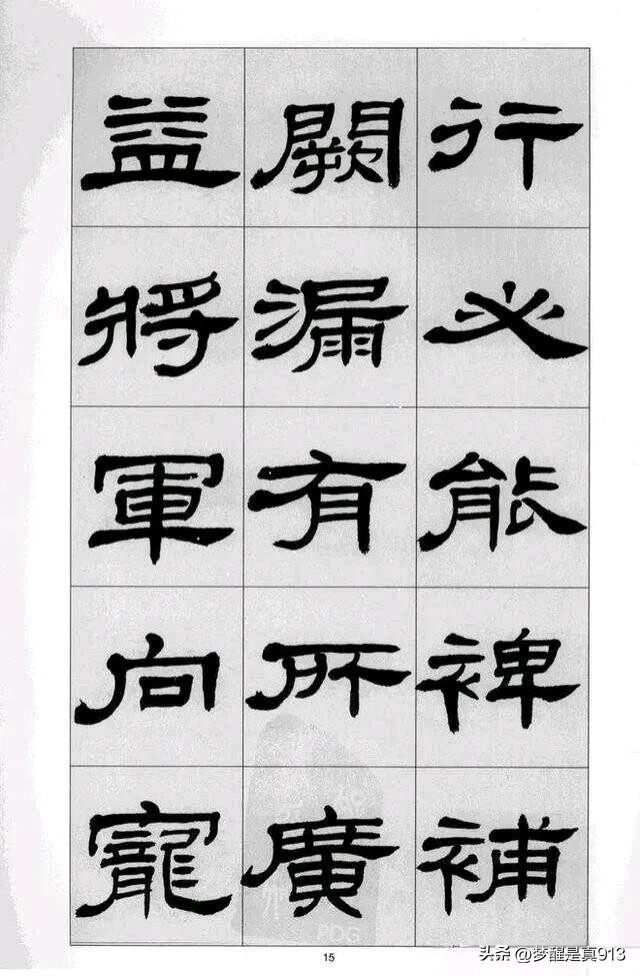 行必能裨補
闕漏有所廣
益將軍向寵
15
PDG
头条 @梦醒是真913